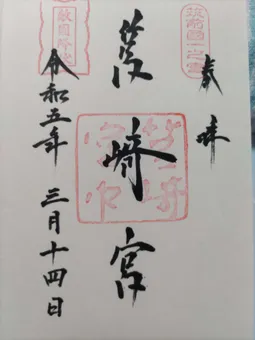 奉拝
筑前國一之宮
筥崎宮
筥崎宮印
敵国降伏
令和五年 三月十四日